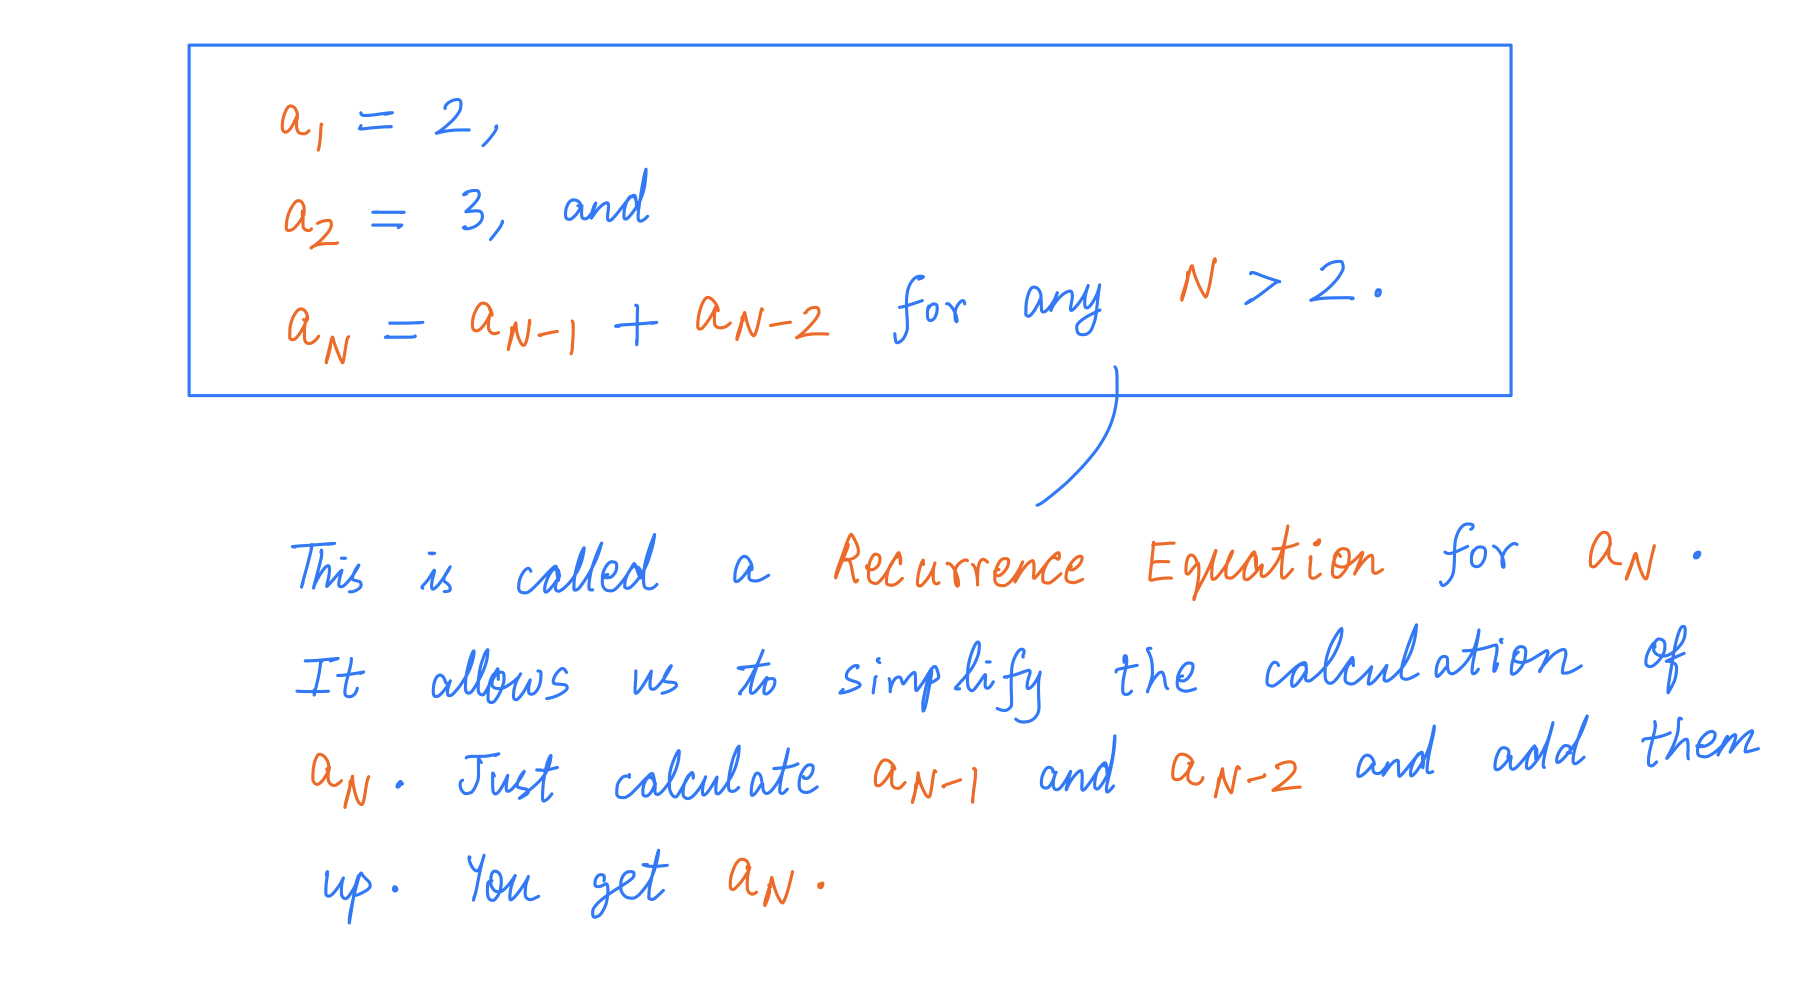 a₁ = 2,
a₂ = 3, and
a_N = a_{N-1} + a_{N-2} for any N > 2.
This is called a Recurrence Equation for a_N.
It allows us to simplify the calculation of
a_N. Just calculate a_{N-1} and a_{N-2} and add them
up. You get a_N.